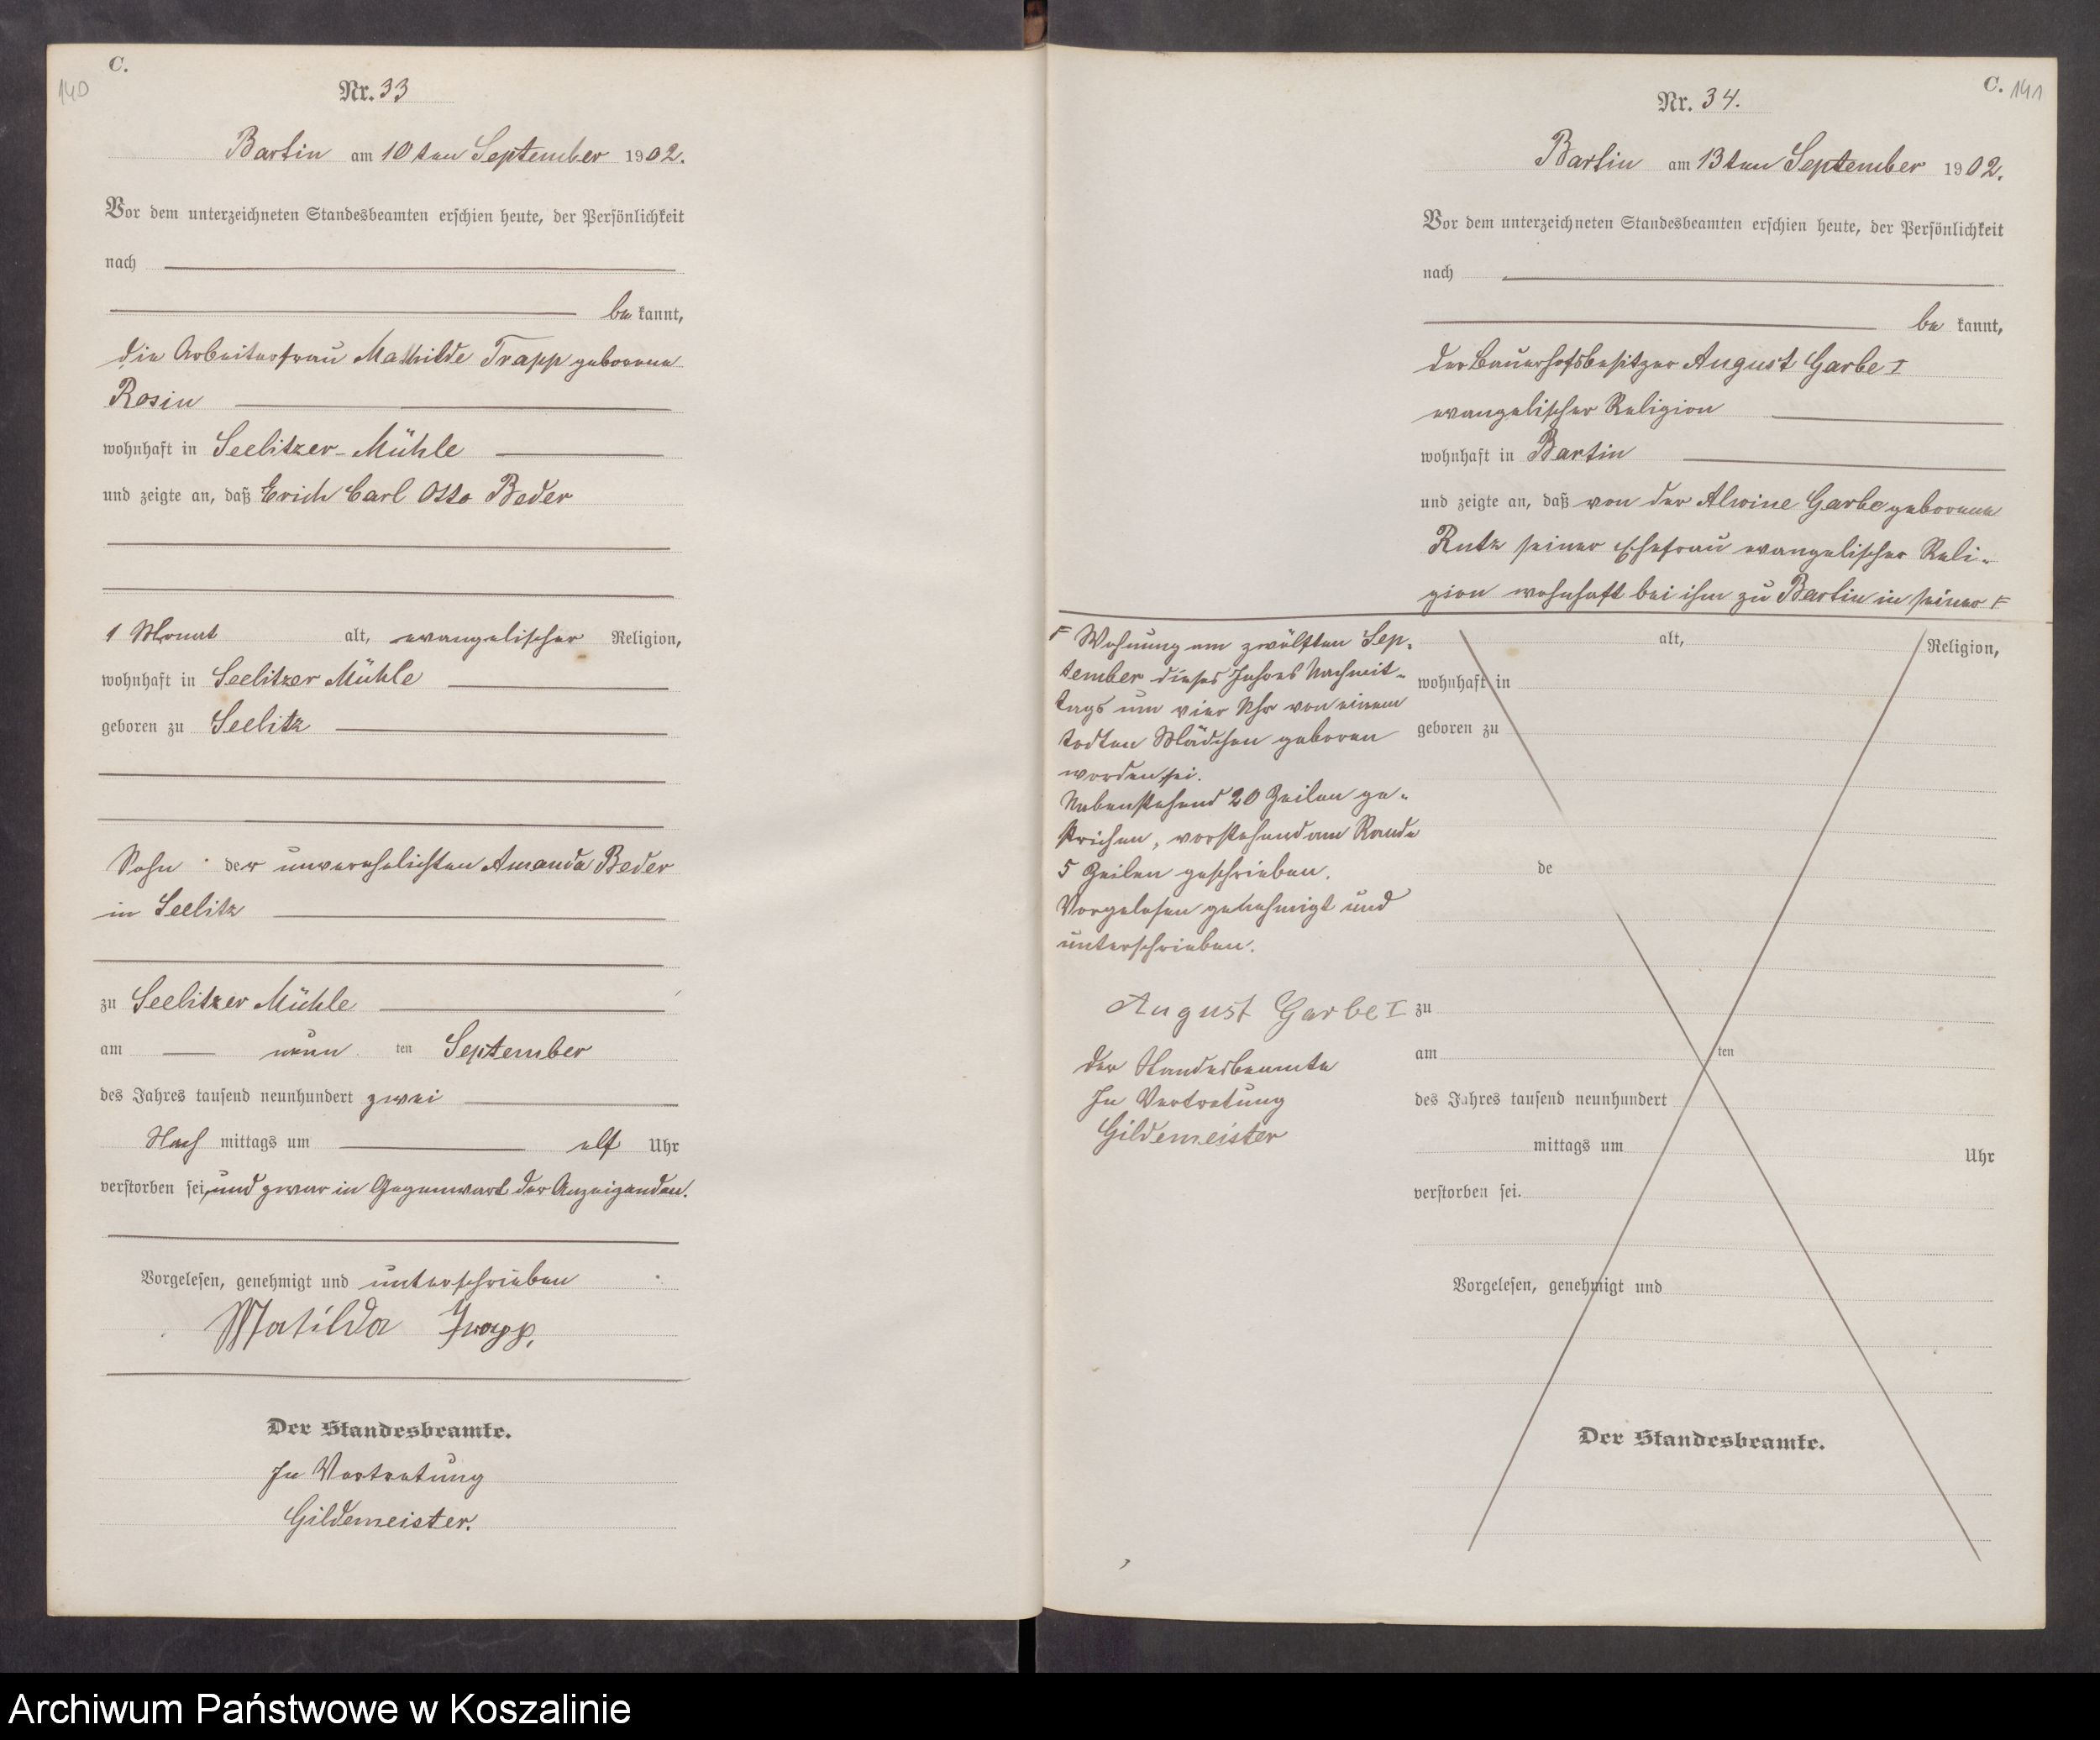 C.
140
Nr. 33
Bartin am 10ten September 1902.
Vor dem unterzeichneten Standesbeamten erschien heute, der Persönlichkeit
nach
be kannt,
die Arbeiterfrau Mathilde Trapp geborene
Rosin
wohnhaft in Seelitzer-Mühle
und zeigte an, daß Erich Carl Otto Beder
1 Monat alt, evangelischer Religion,
wohnhaft in Seelitzer Mühle
geboren zu Seelitz
Sohn der unverehelichten Amanda Beder
in Seelitz
zu Seelitzer Mühle
am neun ten September
des Jahres tausend neunhundert zwei
Nach mittags um elf Uhr
verstorben sei, und zwar in Gegenwart der Anzeigenden.
Vorgelesen, genehmigt und unterschrieben
Matilda Trapp,
Der Standesbeamte.
In Vertretung
Gildemeister.
C. 141
Nr. 34.
Bartin am 13ten September 1902.
Vor dem unterzeichneten Standesbeamten erschien heute, der Persönlichkeit
nach
be kannt,
der Bauerhofsbesitzer August Garbe I
evangelischer Religion
wohnhaft in Bartin
und zeigte an, daß von der Alwine Garbe geborene
Rutz seiner Ehefrau evangelischer Reli-
gion wohnhaft bei ihm zu Bartin in seiner F
F Wohnung am zwölften Sep-
tember dieses Jahres Nachmit-
tags um vier Uhr von einem
todten Mädchen geboren
worden sei.
Nebenstehend 20 Zeilen ge-
strichen, vorstehend am Rande
5 Zeilen geschrieben.
Vorgelesen genehmigt und
unterschrieben.
August Garbe I
Der Standesbeamte
In Vertretung
Gildemeister
alt, Religion,
wohnhaft in
geboren zu
de
zu
am ten
des Jahres tausend neunhundert
mittags um Uhr
verstorben sei.
Vorgelesen, genehmigt und
Der Standesbeamte.
Archiwum Państwowe w Koszalinie